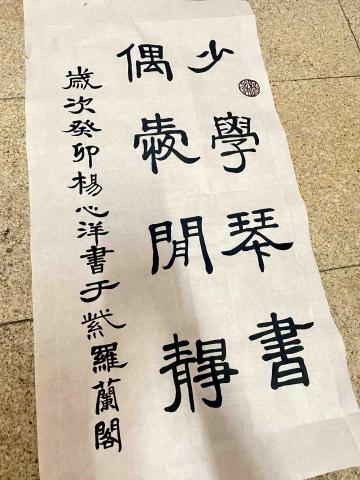 少學琴書
偶愛閒靜
歲次癸卯楊心洋書于紫羅蘭閣